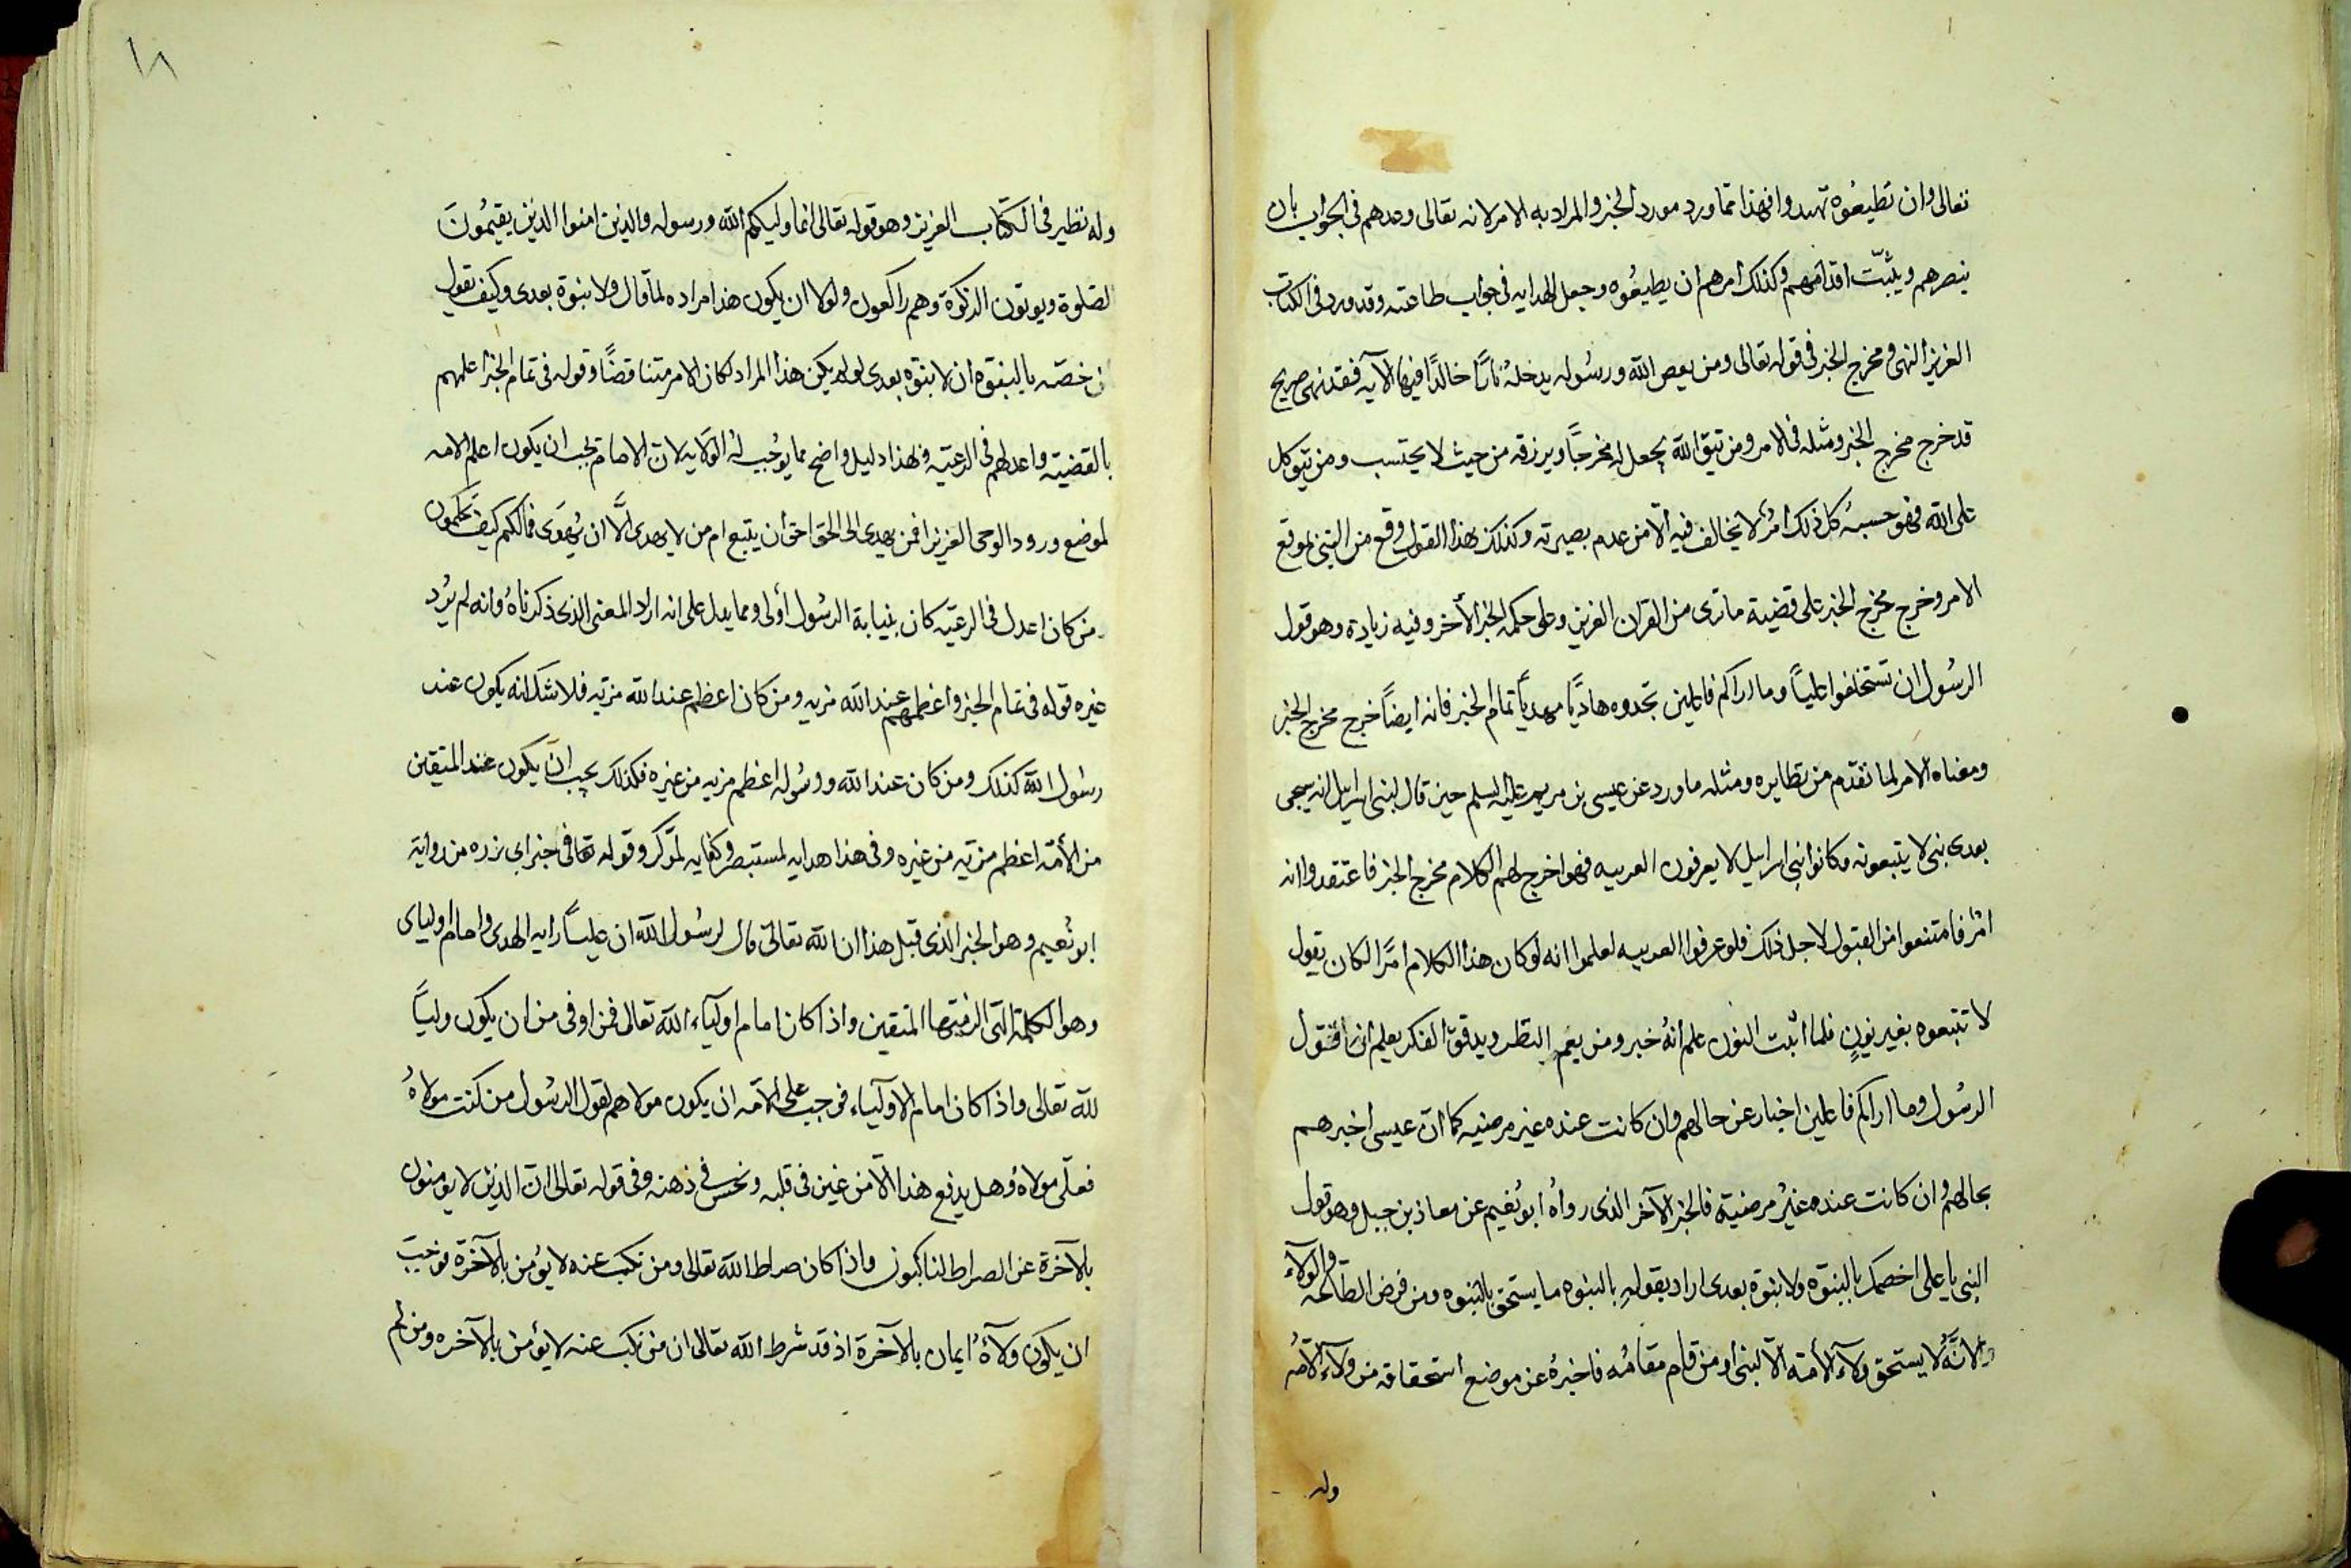 تعالى وان تطيعوه تهتدوا فهذا مما ورد مورد الخبر والمراد به الامر لانه تعالى وعدهم فى الجواب بان
ينصرهم ويثبّت اقدامهم وكذلك امرهم ان يطيعوه وجعل الهدايه فى جواب طاعته وقد ورد فى الكتاب
العزيز النهى ومخرج الخبر فى قوله تعالى ومن يعص الله ورسوله يدخله نارًا خالدًا فيها الآيه فقد نهى صريح
قد خرج مخرج الخبر ومثله فى الامر ومن يتق الله يجعل له مخرجًا ويرزقه من حيث لا يحتسب ومن يتوكل
على الله فهو حسبه كل ذلك امرٌ لا يخالف فيه الّا من عدم بصيرته وكذلك هذا القول وقع من النبى بموقع
الامر وخرج مخرج الخبر على قضية ما ترى من القران العزيز وعلى حكمه الخبر الأخر وفيه زيادة وهو قول
الرسول ان تستخلفوا عليًا وما اراكم فاعلين تجدوه هاديًا مهديًا تمام الخبر فانه ايضًا خرج مخرج الخبر
ومعناه الامر لما تقدّم من نظايره ومثله ما ورد عن عيسى بن مريم عليه السلم حين قال لبنى اسرايل انه سيجى
بعدى نبى لا يتبعونه وكانوا بنى اسرايل لا يعرفون العربيه فهو اخرج لهم الكلام مخرج الخبر فاعتقدوا انه
امرٌ فامتنعوا من القبول لاجل ذلك فلو عرفوا العربيه لعلموا انه لو كان هذا الكلام امرًا لكان يقول
لا تتبعوه بغير نونٍ فلما اثبت النون علم أنهُ خبر ومن ينعم النظر ويدقق الفكر يعلم ان قول
الرسول وما اراكم فاعلين اخبار عن حالهم وان كانت عنده غير مرضيه كما انّ عيسى اخبرهم
بحالهم وان كانت عنده غيرُ مرضيّة فالخبر الآخر الذى رواهُ ابو نُعيم عن معاذ بن جبل وهو قول
النبى يا على اخصمك بالبنوّه ولا نبوّة بعدى اراد بقوله بالنبوه ما يستحق بالنبوه ومن فرض الطاعه والولآء
ولانّهُ لا يستحق ولآء الأمّة الّا نبى او من قام مقامُه فاخبرهُ عن موضع استحقاقه من ولآء الأمّه
وله
١٨
وله نظير فى الكتاب العزيز وهو قوله تعالى انما وليكم الله ورسوله والذين امنوا الذين يقيمُونَ
لصلوة ويوتون الزكوة وهم راكعون ولولا ان يكون هذا مراده لما قال ولا نبوة بعدى وكيف يقول
ن خصّه بالنبوّه ان لا نبوّه بعدى لو لم يكن هذا المراد لكان الامر متناقضًا وقوله فى تمام الخبر اعلمهم
بالقضيّه واعدلهم فى الرعيّه فهذا دليل واضح مما يوُجب لهُ الولايه لان الامام يجب ان يكون اعلم الامه
لموضع ورود الوحى العزيز افمن يهدى الى الحق احق أن يتبع ام من لا يهدى الّا ان يُهدى فما لكم كيف تحكمون
من كان اعدل فى الرعيّه كان بنيابة الرسول أولى ومما يدل على انه اراد المعنى الذى ذكرناهُ وانه لم يُرد
غيره قوله فى تمام الخبر واعظمهم عند الله مزيه ومن كان اعظم عند الله مزيّه فلا شك انه يكون عند
رسول الله كذلك ومن كان عند الله ورسُوله اعظم مزيه من غيره فكذلك يجب انّ يكون عند المتّقين
من الأمّه اعظم مزيّه من غيره وفى هذا هدايه لمستبصر وكفايه لمذّكر وقوله تعالى فى خبر ابى برزه من رواية
ابو نُعيم وهو الخبر الذى قبل هذا ان الله تعالى قال لرسُول الله ان عليًا رايه الهدى وامام اوليائى
وهو الكلمة التى الزمتها المتقين واذا كان امام اوليآء الله تعالى فمن اوفى من ان يكون وليًا
لله تعالى واذا كان امام الاوليآء فوجب على الامّه ان يكون مولاهم لقول الرسُول من كنت مولاهُ
فعلى مولاهُ وهل يدفع هذا الّا من غين فى قلبه ونحس فى ذهنه وفى قوله تعالى انّ الذين لا يومنون
بالآخرة عن الصراط لناكبون واذا كان صراط الله تعالى ومن نكب عنه لا يؤمن بالآخرة فوجبَ
ان يكون ولآءهُ ايمان بالآخرة اذ قد شرط الله تعالى ان من نكب عنه لا يؤمن بالآخره ومن لم